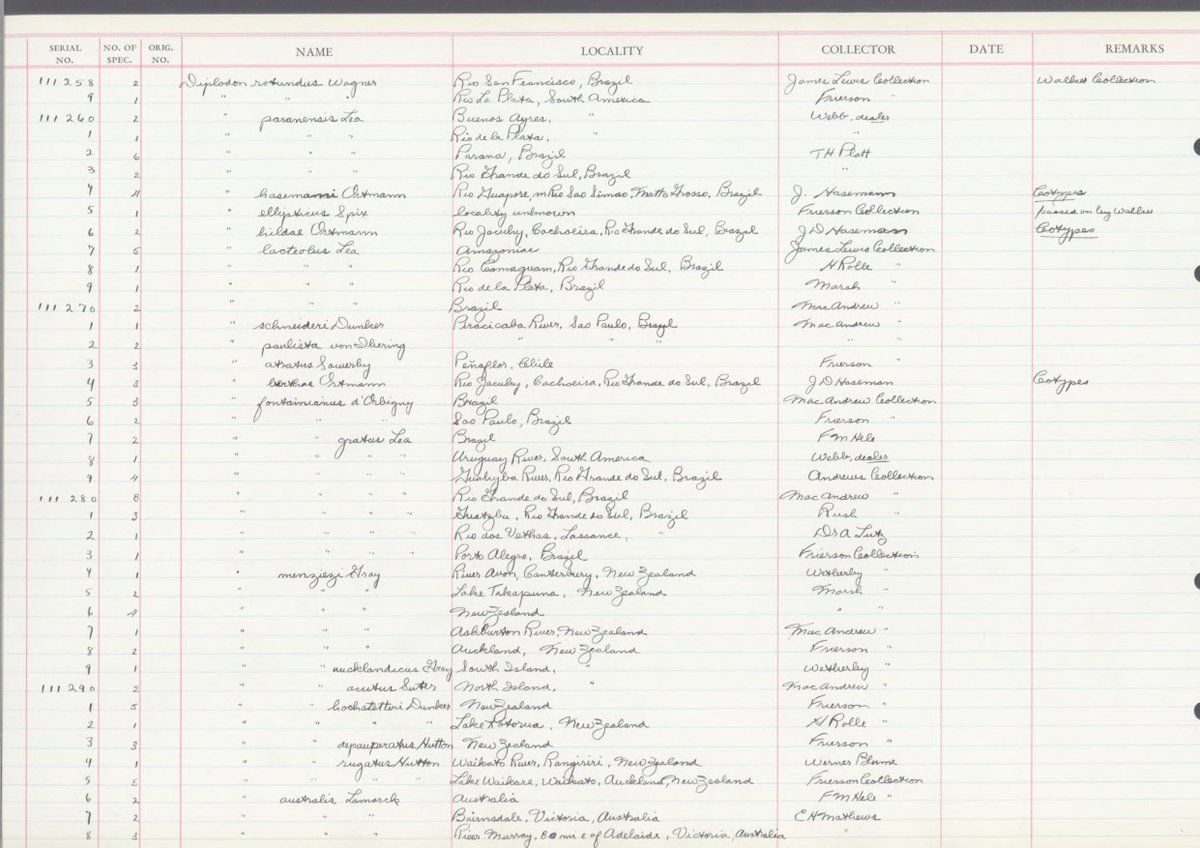 SERIAL NO. NO. OF SPEC. ORIG. NO. NAME LOCALITY COLLECTOR DATE REMARKS
111258 2 Diplodon rotundus Wagner Rio San Francisco, Brazil James Lewis Collection Walker Collection
9 1 " " " Rio La Plata, South America Frierson "
111260 2 " paranensis Lea Buenos Ayres, " Webb, dealer
1 1 " " " Rio de la Plata, "
2 6 " " " Parana, Brazil T H Platt
3 2 " " " Rio Grande do Sul, Brazil "
4 4 " hasemanni Ortmann Rio Guapore, m Rio Sao Simao, Matto Grosso, Brazil J. Hasemann Cotypes
5 1 " ellipticus Spix locality unknown Frierson Collection passed on by Walker
6 2 " hildae Ortmann Rio Jacuhy, Cachoeira, Rio Grande do Sul, Brazil J D Haseman Cotypes
7 5 " lacteolus Lea Amazonia James Lewis Collection
8 1 " " " Rio Comaquam, Rio Grande do Sul, Brazil H Rolle "
9 1 " " " Rio de la Plata, Brazil Marsh "
111270 2 " " " Brazil Mac Andrew "
1 1 " schneideri Dunker Piracicaba River, Sao Paulo, Brazil Mac Andrew "
2 2 " paulista von Ihering " " " " "
3 3 " atratus Sowerby Peñaflor, Chile Frierson "
4 3 " berthae Ortmann Rio Jacuhy, Cachoeira, Rio Grande do Sul, Brazil J D Haseman Cotypes
5 3 " fontaineanus d'Orbigny Brazil Mac Andrew Collection
6 2 " " " Sao Paulo, Brazil Frierson "
7 2 " " gratus Lea Brazil F M Hele
8 1 " " " " Uruguay River, South America Webb, dealer
9 4 " " " " Guahyba River, Rio Grande do Sul, Brazil Andrews Collection
111280 8 " " " " Rio Grande do Sul, Brazil Mac Andrew "
1 3 " " " " Rio Grande do Sul, Brazil Rush "
2 1 " " " " Rio das Velhas, Lassance, " Dr A Lutz
3 1 " " " " Porto Alegro, Brazil Frierson Collection
4 1 " menziezi Gray River Avon, Canterbury, New Zealand Wetherby "
5 2 " " " Lake Takapuna, New Zealand Marsh "
6 4 " " " New Zealand " "
7 1 " " " Ashburton River, New Zealand Mac Andrew "
8 2 " " " Auckland, New Zealand Frierson "
9 1 " " aucklandicus Gray South Island, " Wetherby "
111290 2 " " acutus Suter North Island, " Mac Andrew "
1 5 " " hochstetteri Dunker New Zealand Frierson "
2 1 " " " " Lake Rotorua, New Zealand H Rolle "
3 3 " " depauperatus Hutton New Zealand Frierson "
4 1 " " rugatus Hutton Waikato River, Rangiriri, New Zealand Werner Blume
5 5 " " " " Lake Waikare, Waikato, Auckland, New Zealand Frierson Collection
6 2 " australis Lamarck Australia F M Hele "
7 2 " " " Bairnsdale, Victoria, Australia E H Mathews
8 3 " " " River Murray, 80 mi e of Adelaide, Victoria, Australia "